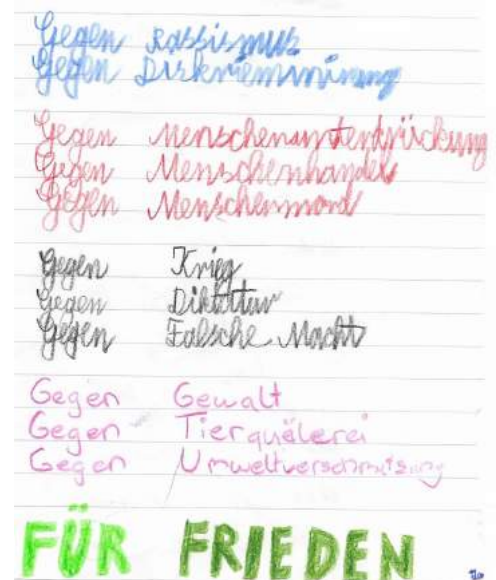 Gegen Rassismus
Gegen Diskriemminirung
Gegen Menschenunterdrückung
Gegen Menschenhandel
Gegen Menschenmord
Gegen Krieg
Gegen Diktattur
Gegen Falsche Macht
Gegen Gewalt
Gegen Tierquälerei
Gegen Umweltverschmutsung
FÜR FRIEDEN